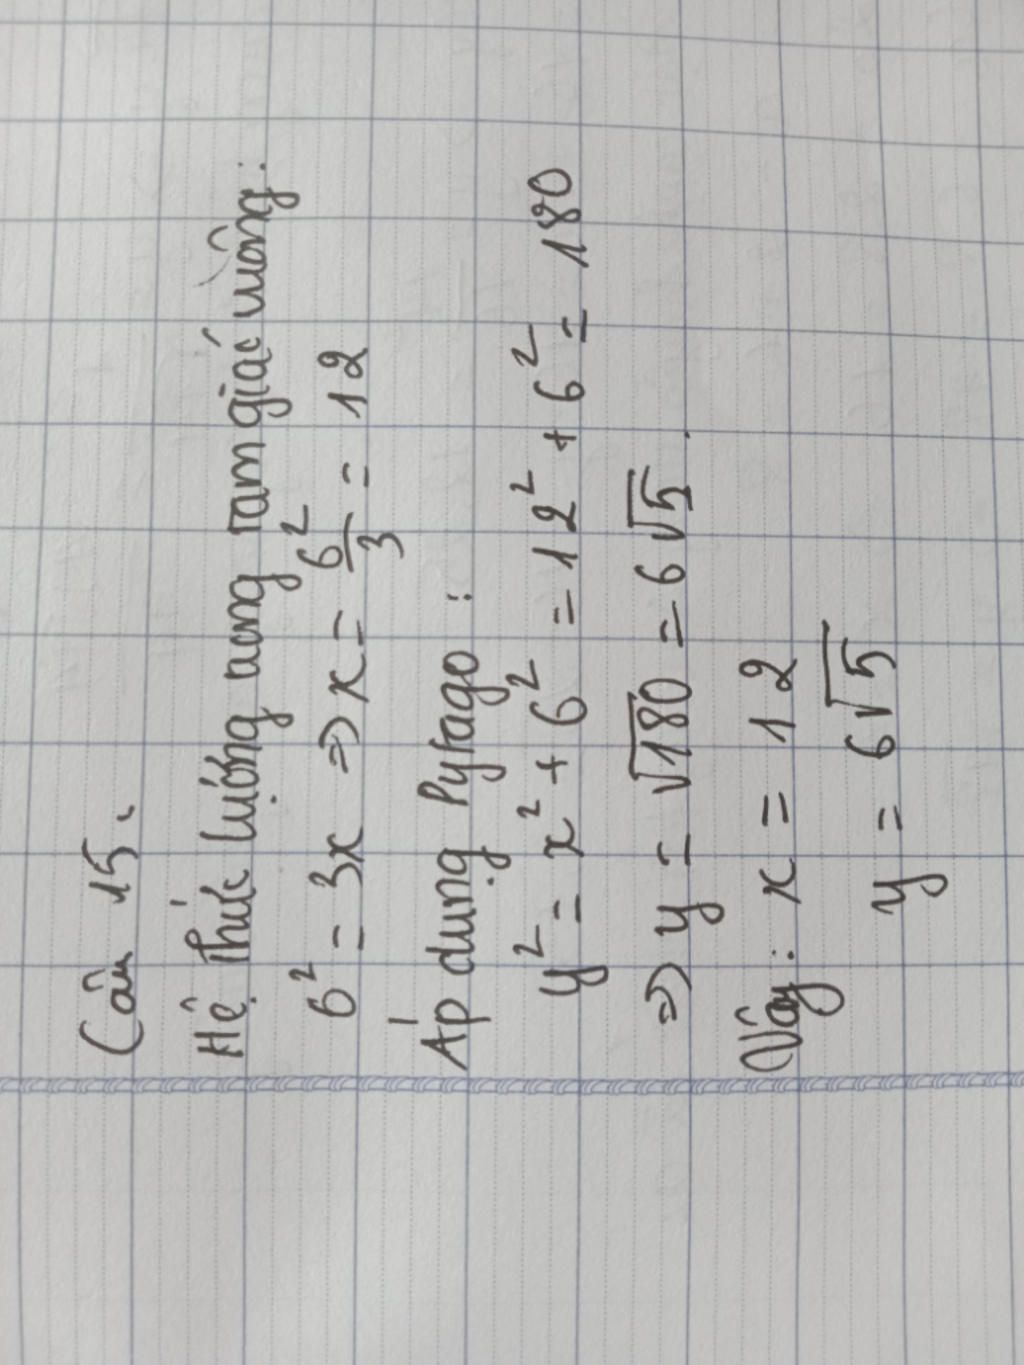 Câu 15.
Hệ thức lượng trong tam giác vuông:
6² = 3x => x = 6²/3 = 12
Áp dụng Pytago :
y² = x² + 6² = 12² + 6² = 180
=> y = √180 = 6√5.
Vậy: x = 12
y = 6√5